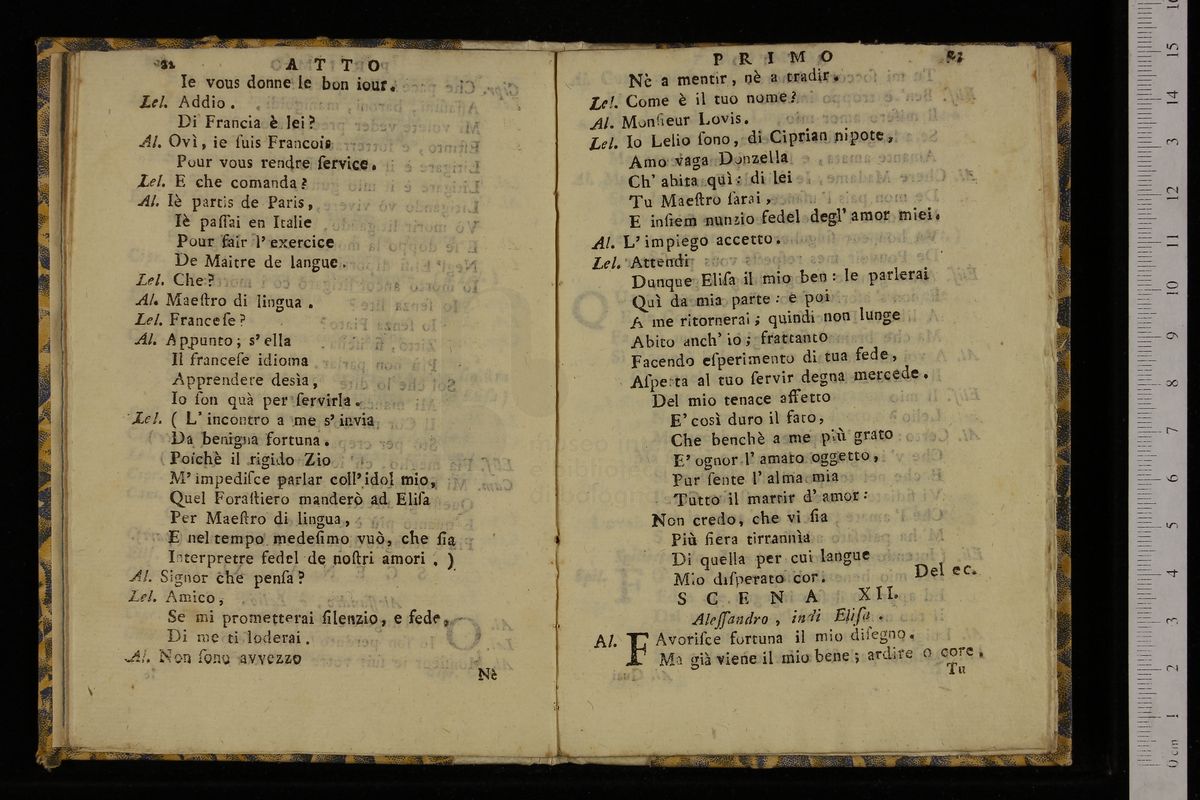 22 ATTO
Ie vous donne le bon iour.
Lel. Addio.
Di Francia è lei?
Al. Ovì, ie ſuis Francois
Pour vous rendre ſervice.
Lel. E che comanda?
Al. Iè partis de Paris,
Iè paſſai en Italie
Pour fair l'exercice
De Maitre de langue.
Lel. Che?
Al. Maeſtro di lingua.
Lel. Franceſe?
Al. Appunto; s'ella
Il franceſe idioma
Apprendere desìa,
Io ſon quà per ſervirla.
Lel. ( L'incontro a me s'invia
Da benigna fortuna.
Poichè il rigido Zio
M'impediſce parlar coll'idol mio,
Quel Foraſtiero manderò ad Eliſa
Per Maeſtro di lingua,
E nel tempo medeſimo vuò, che ſia
Interpretre fedel de noſtri amori. )
Al. Signor che penſa?
Lel. Amico,
Se mi prometterai ſilenzio, e fede,
Di me ti loderai.
Al. Non ſono avvezzo
Nè
PRIMO 23
Nè a mentir, nè a tradir.
Lel. Come è il tuo nome?
Al. Monſieur Lovis.
Lel. Io Lelio ſono, di Ciprian nipote,
Amo vaga Donzella
Ch' abita quì: di lei
Tu Maeſtro ſarai,
E inſiem nunzio fedel degl' amor miei.
Al. L'impiego accetto.
Lel. Attendi
Dunque Eliſa il mio ben: le parlerai
Quì da mia parte: e poi
A me ritornerai; quindi non lunge
Abito anch' io; frattanto
Facendo eſperimento di tua fede,
Aſpetta al tuo ſervir degna mercede.
Del mio tenace affetto
E' così duro il fato,
Che benchè a me più grato
E' ognor l'amato oggetto,
Pur ſente l'alma mia
Tutto il martir d'amor:
Non credo, che vi ſia
Più fiera tirrannìa
Di quella per cui langue
Mio diſperato cor. Del ec.
SCENA XII.
Aleſſandro, indi Eliſa.
Al. FAvoriſce fortuna il mio diſegno.
Ma già viene il mio bene; ardire o core.
Tu